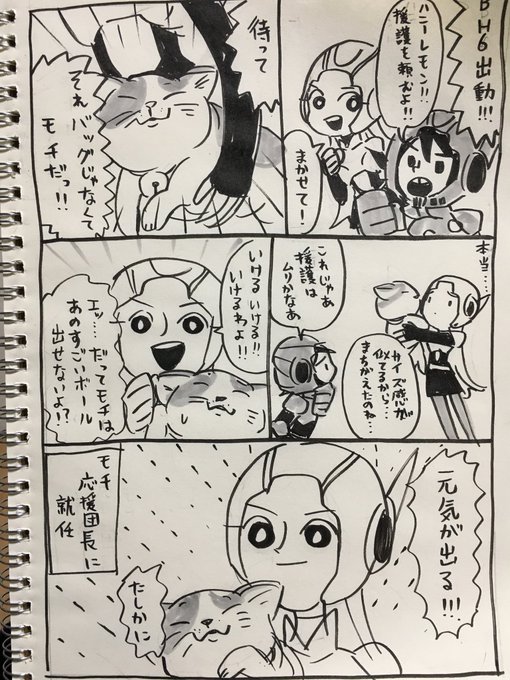 BH6出動!!!
ハニーレモン!!
援護を頼むよ!!
まかせて!
待って
それ
バッグじゃなくて
モチだっ!!
本当…
サイズ感が
似てるから…
まちがえたのね…
これじゃあ
援護は
ムリかなぁ
いけるいける!!
いけるわよ!!
エッ…だってモチは
あのすごいボール
出せないよ!?
元気が出る!!!
たしかに
モチ
応援団長に
就任